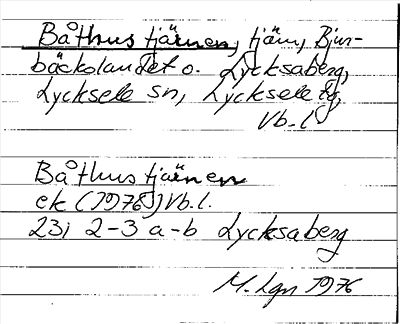 Båthustjärnen, tjärn, Bjur-
bäckslandet o. Lycksaberg,
Lycksele sn, Lycksele lg,
Vb. l
Båthustjärnen
ek (1978) Vb. l.
23i 2-3 a-b Lycksaberg
M. Lgn 1976